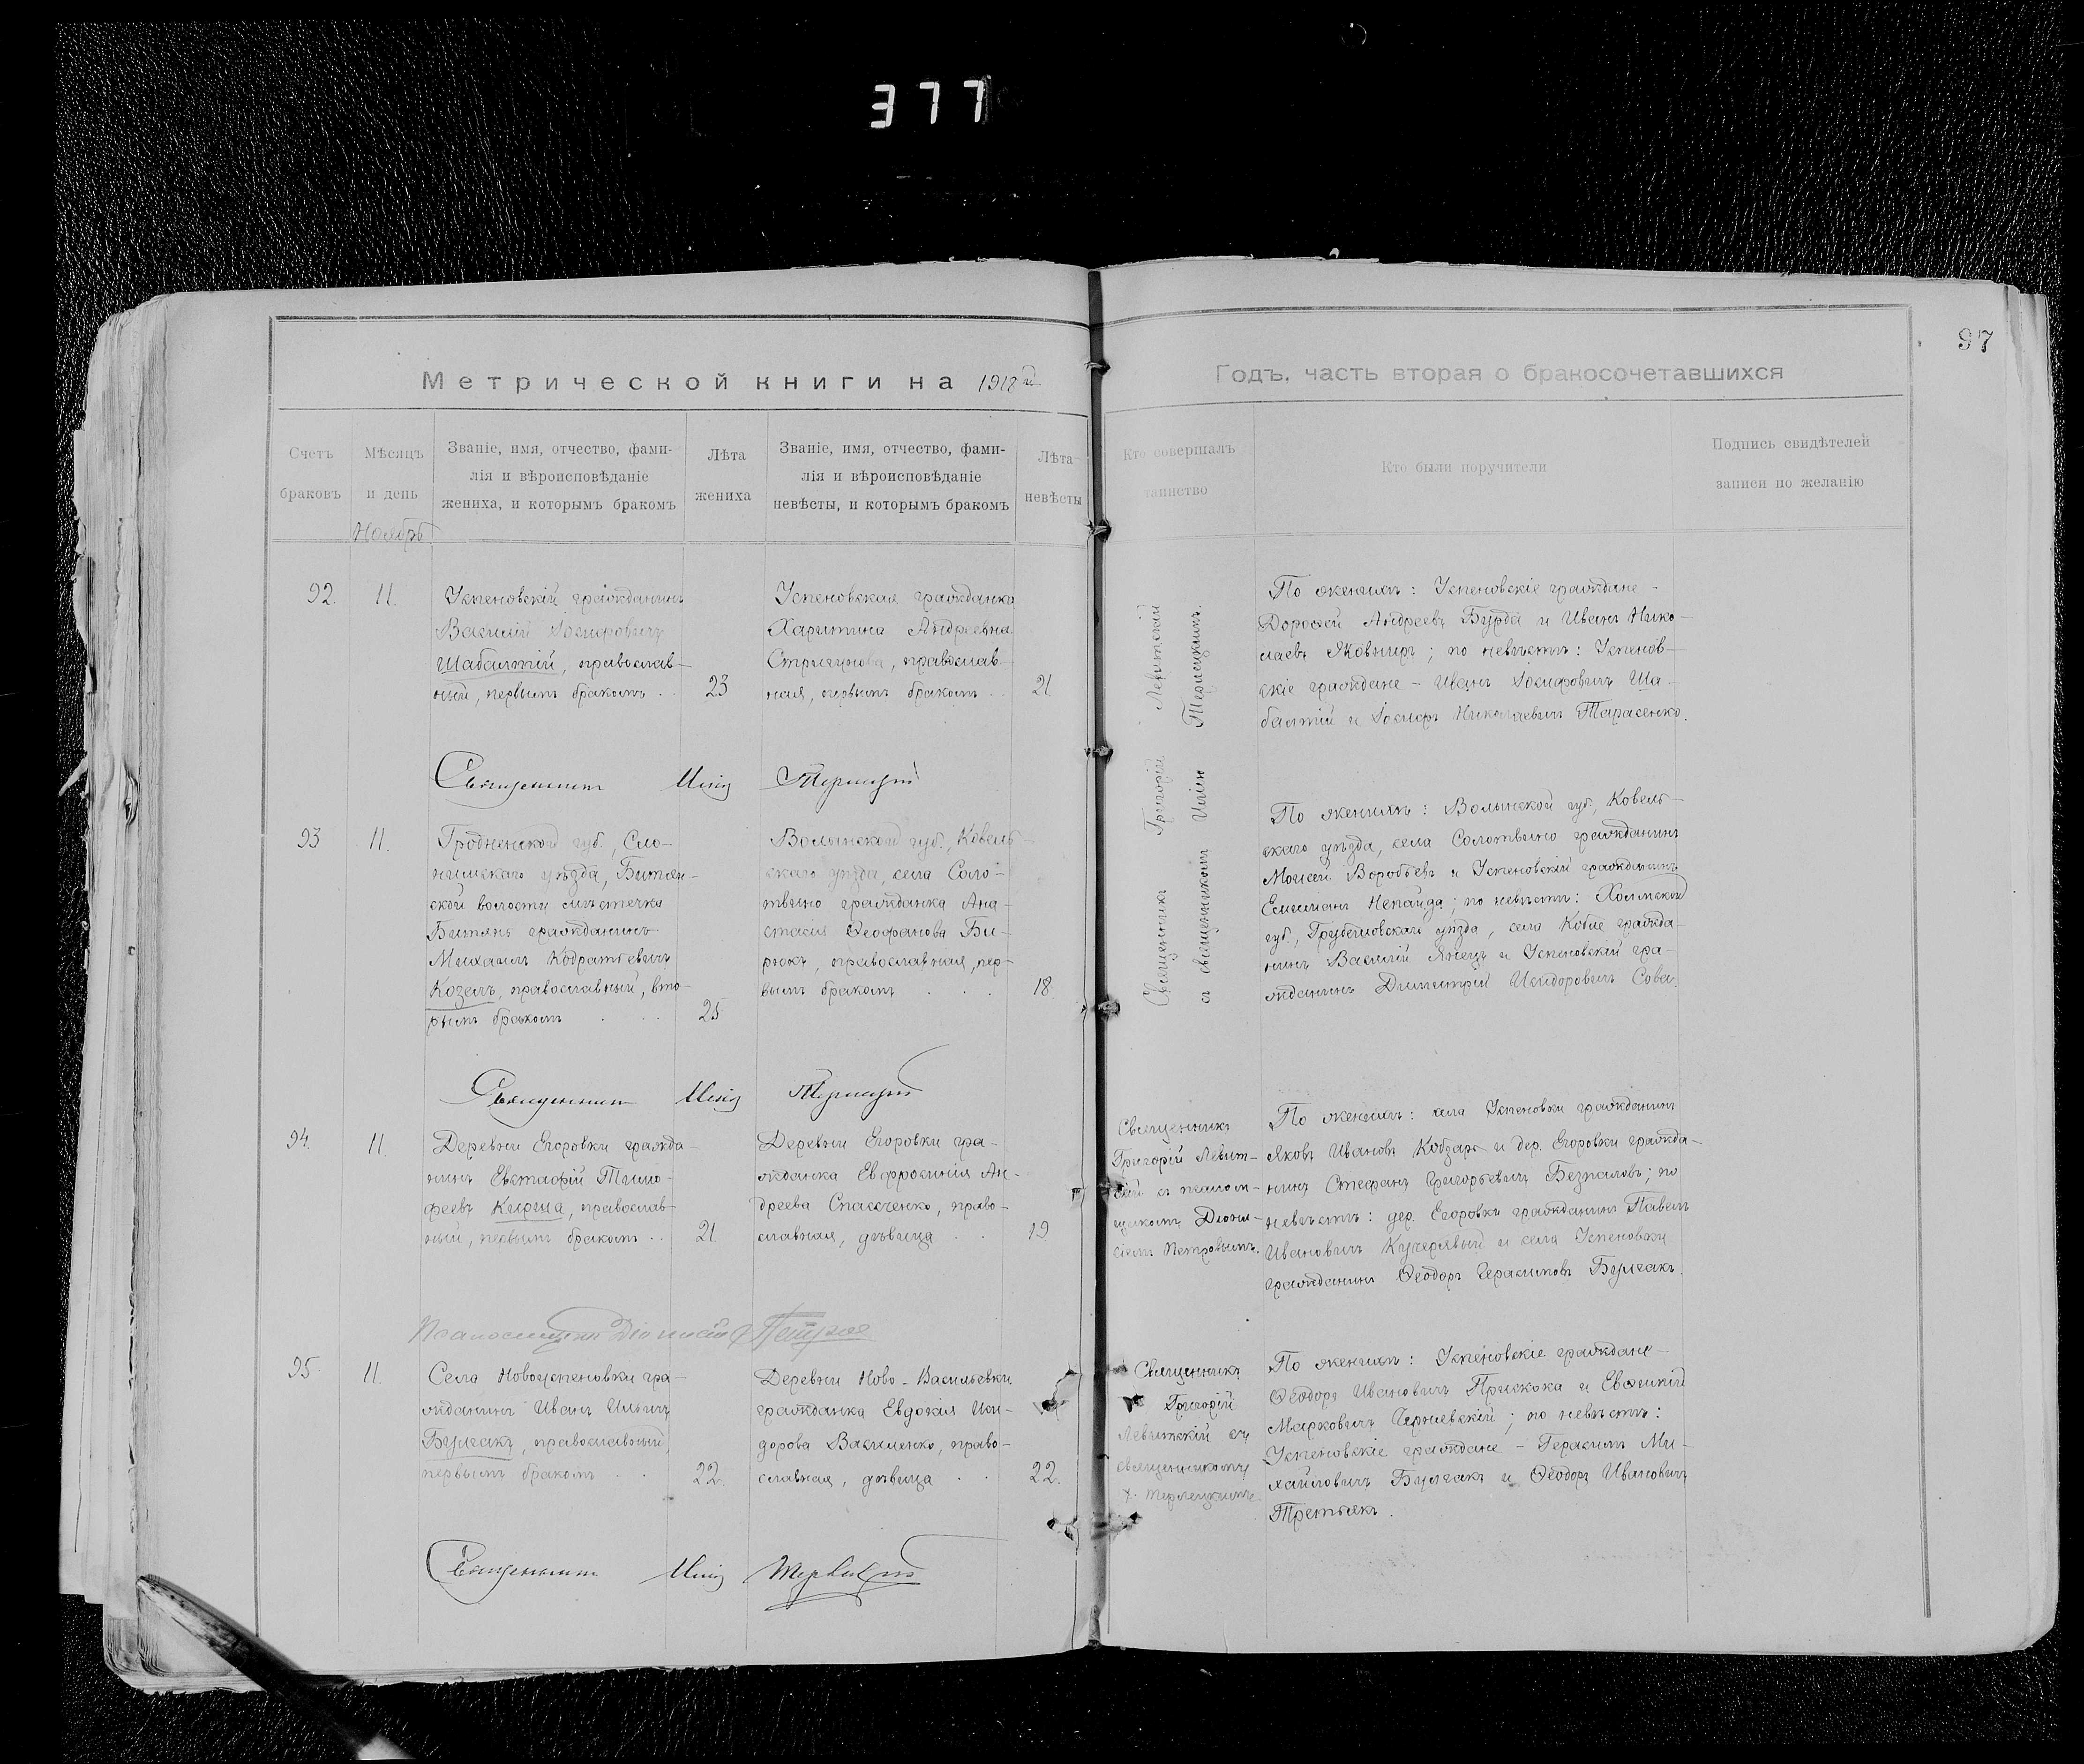 377
97
Метрической книги на 1918 й
Годъ, часть вторая о бракосочетавшихся
Счетъ браковъ
Мѣсяцъ и день
Званіе, имя, отчество, фами-
лія и вѣроисповѣданіе
жениха, и которымъ бракомъ
Лѣта жениха
Званіе, имя, отчество, фами-
лія и вѣроисповѣданіе
невѣсты, и которымъ бракомъ
Лѣта невѣсты
Кто совершалъ таинство
Кто были поручители
Подпись свидѣтелей
записи по желанію
Ноябрь
92.
11.
Успеновскій гражданинъ
Василій Іосифовичъ
Шабалтій, православ-
ный, первымъ бракомъ . .
23
Успеновская гражданка
Харитина Андреевна
Стригунова, православ-
ная, первымъ бракомъ . .
21
Священникъ Григорій Левитскій
съ священникомъ Иліею Терлецкимъ.
По женихѣ: Успеновскіе граждане -
Дорофей Андреевъ Бурда и Иванъ Нико-
лаевъ Яковниръ; по невѣстѣ: Успенов-
скіе граждане - Иванъ Іосифовичъ Ша-
балтій и Іосифъ Николаевичъ Тарасенко.
Священникъ Илія Терлецкій
93
11.
Гродненской губ., Сло-
нимскаго уѣзда, Битен-
ской волости мѣстечка
Битень гражданинъ
Михаилъ Кодратьевичъ
Козелъ, православный, вто-
рымъ бракомъ . . .
25
Волынской губ., Ковель-
скаго уѣзда, села Соло-
твино гражданка Ана-
стасія Ѳеофанова Би-
рюкъ, православная, пер-
вымъ бракомъ . . .
18
По женихѣ: Волынской губ., Ковель-
скаго уѣзда, села Солотвино гражданинъ
Моисей Воробьевъ и Успеновскій гражданинъ
Емилианъ Непайда; по невѣстѣ: Холмской
губ., Грубешовскаго уѣзда, села Кобле гражда-
нинъ Василій Янецъ и Успеновскій гра-
жданинъ Димитрій Исидоровичъ Сова.
Священникъ Илія Терлецкій
94.
11.
Деревни Егоровки гражда-
нинъ Евстафій Тимо-
феевъ Кирица, православ-
ный, первымъ бракомъ . .
21.
Деревни Егоровки гра-
жданка Евфросинія Ан-
дреева Спасченко, право-
славная, дѣвица . .
19.
Священникъ
Григорій Левит-
скій съ псалом-
щикомъ Діони-
сіемъ Петровымъ.
По женихѣ: села Успеновки гражданинъ
Яковъ Ивановъ Кобзарь и дер. Егоровки гражда-
нинъ Стефанъ Григорьевичъ Безпаловъ; по
невѣстѣ: дер. Егоровки гражданинъ Павелъ
Ивановичъ Кучерявый и села Успеновки
гражданинъ Ѳеодоръ Герасимовъ Булгакъ.
Псаломщикъ Діонисій Петровъ
95.
11.
Села Новоуспеновки гра-
жданинъ Иванъ Ильичъ
Булгакъ, православный,
первымъ бракомъ . .
22.
Деревни Ново-Васильевки
гражданка Евдокія Иси-
дорова Василенко, право-
славная, дѣвица . .
22.
Священникъ
Григорій
Левитскій съ
священникомъ
Терлецкимъ.
По женихѣ: Успеновскіе граждане -
Ѳеодоръ Ивановичъ Прискока и Евфимій
Марковичъ Черневскій; по невѣстѣ:
Успеновскіе граждане - Герасимъ Ми-
хайловичъ Булгакъ и Ѳеодоръ Ивановичъ
Третьякъ.
Священникъ Илія Терлецкій